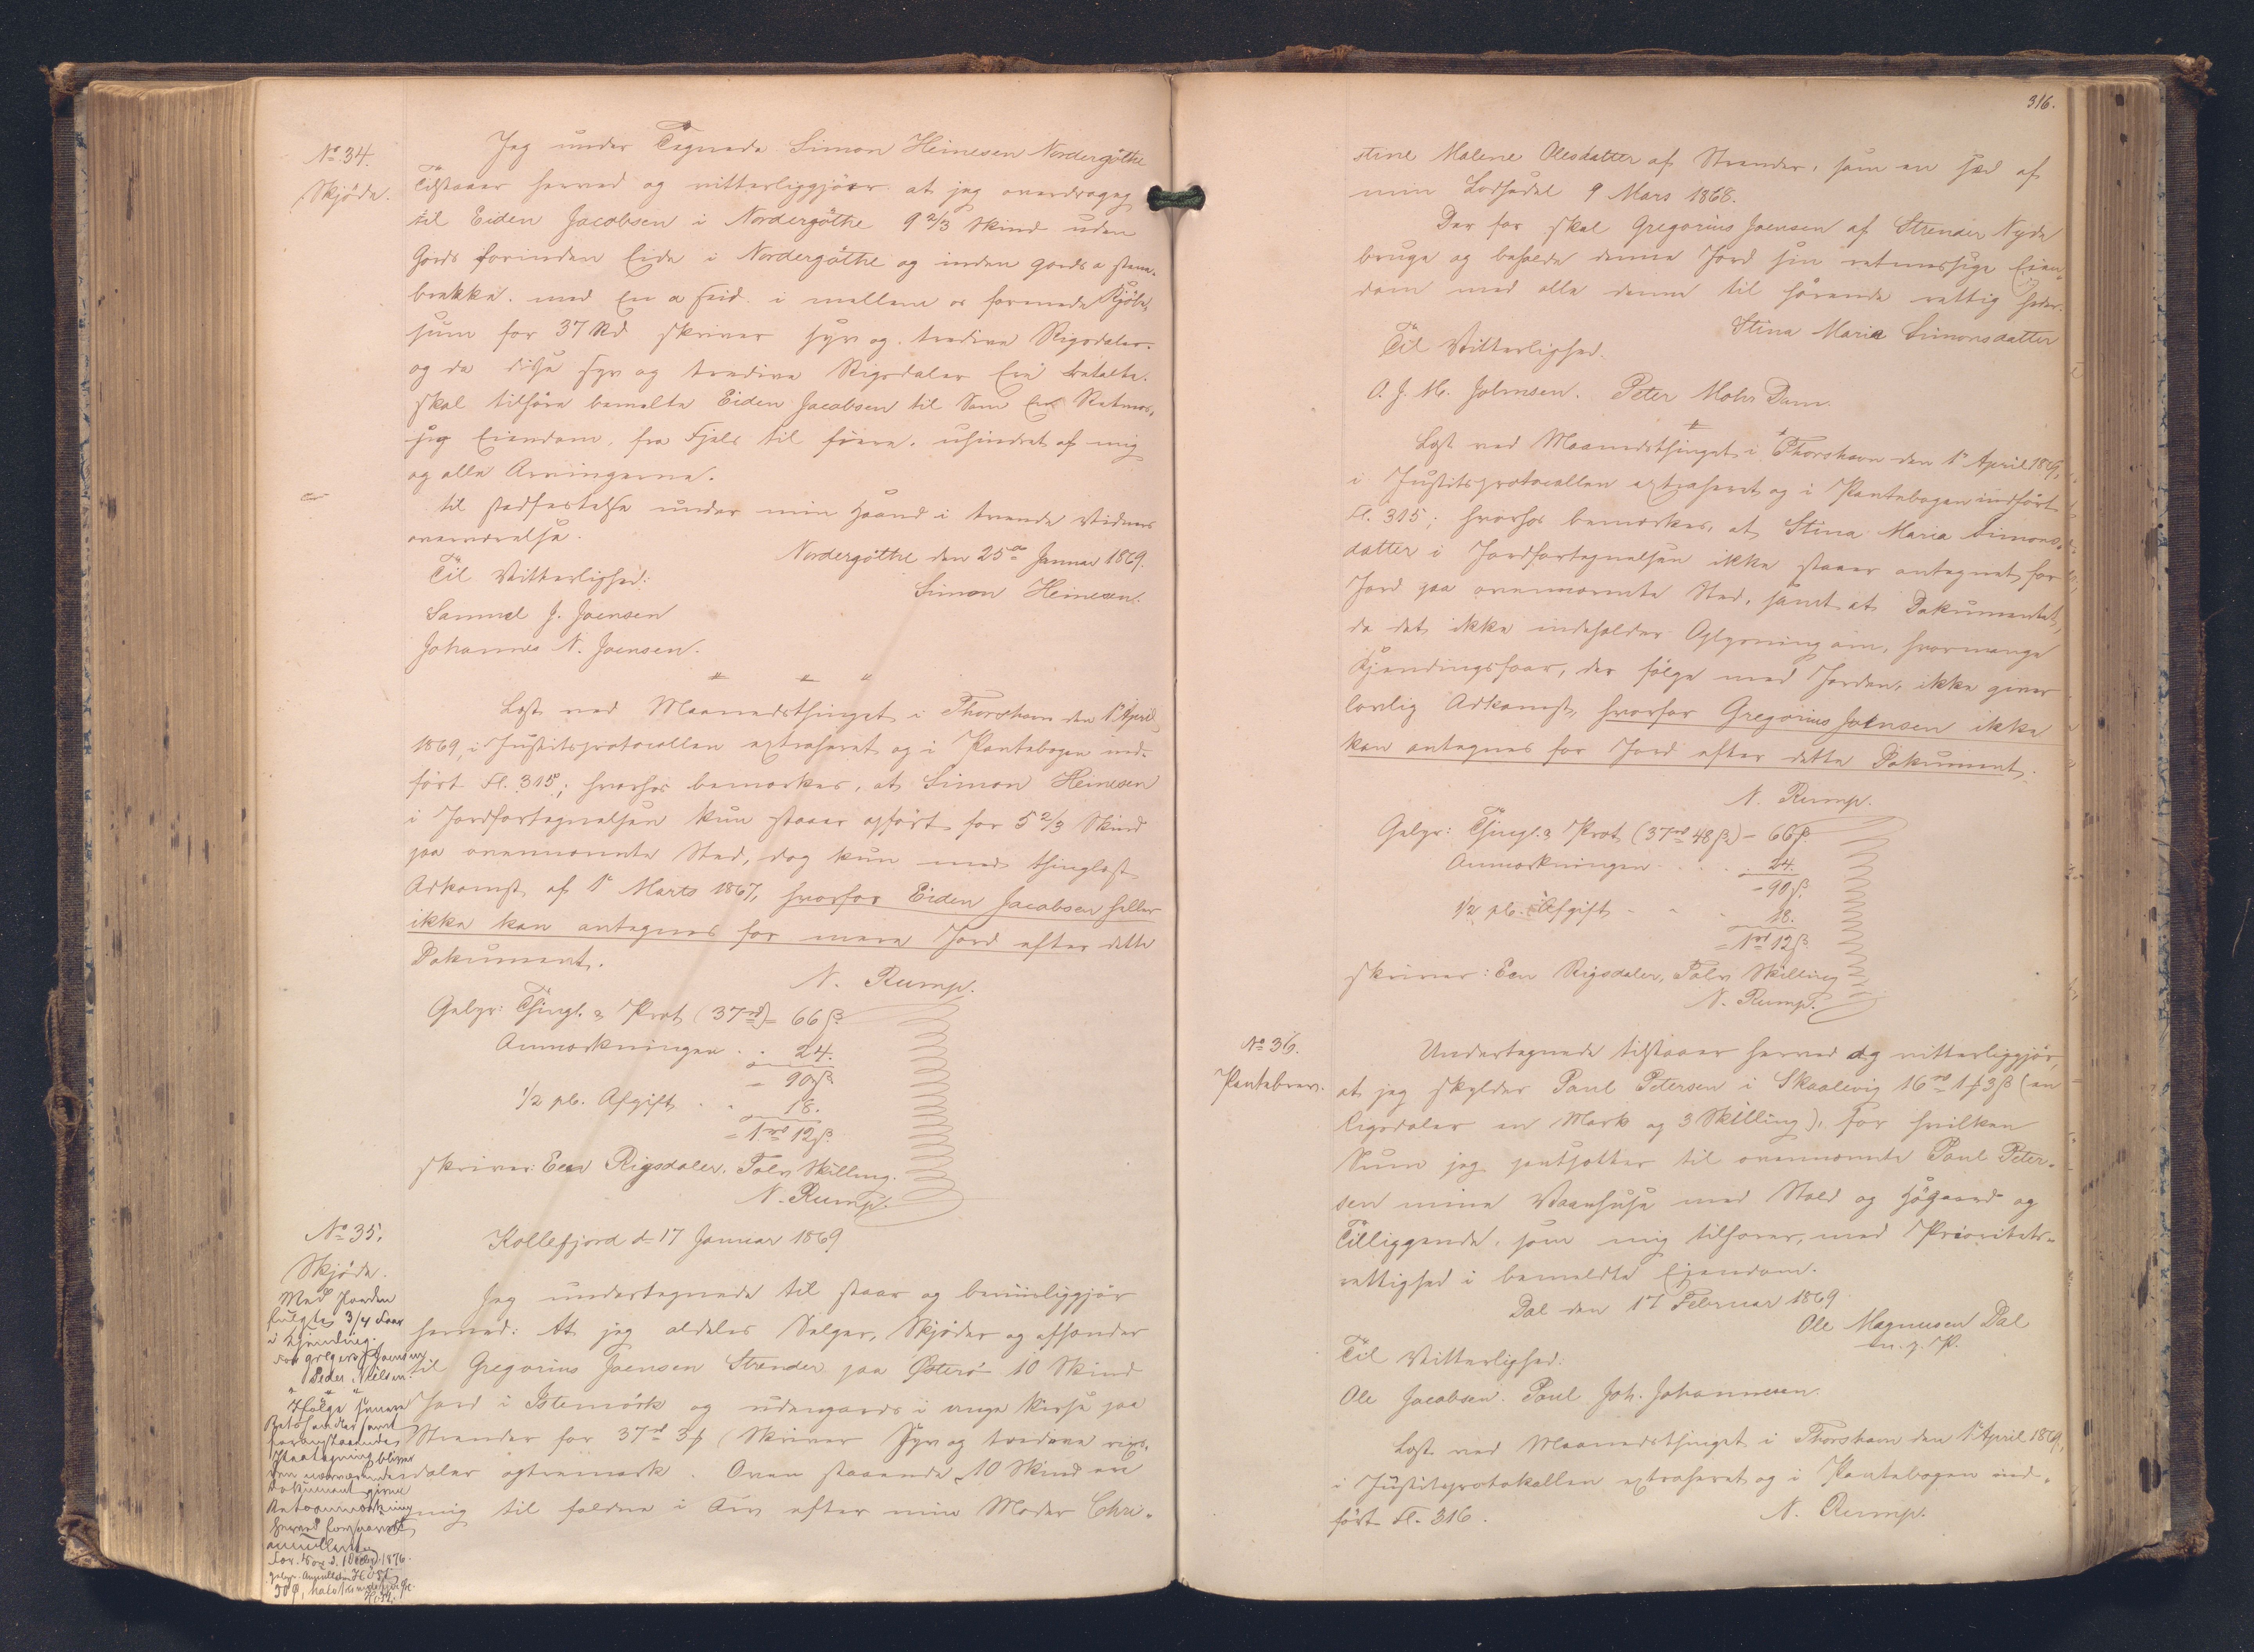 No 34.
Skjöde.
Jeg under Tegnede Simon Heinesen Nordergöthe
Tilstaaer herved og vitterliggjöer at jeg overdrager
til Eiden Jacobsen i Nordergöthe 9 2/3 Skind uden
Gards forinden Eide i Nordergöthe og inden gards a
med En a i mellem os formede Kjöbe
sum for 37 Rd skriver syv og tredive Rigsdaler.
og da disse syv og tredive Rigsdaler Ere betalte.
skal tilhöre bemelte Eiden Jacobsen til Som En Retmes,
sig Eiendom, fra Fjeld til fiære. uhindret af mig
og alle Arvingerne.
til stadfestelse under min Haand i tvende Vidners
overværelse.
Nordergöthe den 25de Januar 1869.
Til Vitterlighed:
Simon Heinesen.
Samuel J. Joensen
Johannes N. Joensen.
Læst ved Maanedsthinget i Thorshavn den 1e April
1869, i Justitsprotocollen extraheret og i Pantebogen ind-
fört Fl. 315; hvorhos bemærkes, at Simon Heinesen
i Jordfortegnelsen kun staaer opfört for 5 2/3 Skind
paa ovennævnte Sted, dog kun med thinglæst
Adkomst af 1e Marts 1867, hvorfor Eiden Jacobsen heller
ikke kan antegnes for mere Jord efter dette
Dokument.
N. Rump.
Gebyr: Thingl. & Prot (37rd) = 66 ß.
Anmærkningen . . 24.
= 90 ß
1/2 pC. Afgift . . 18.
= 1rd 12 ß.
skriver: Een Rigsdaler, Tolv Skilling.
N. Rump.
No 35.
Skjöde.
Kollefjord d 17 Januar 1869
Jeg undertegnede til staar og
herved: At jeg aldeles Selger, Skjöder og afhender
til Gregorius Joensen Strender paa Österö 10 Skind
Jord i og udengards i paa
Strender for 37rd 3ƒ (Skriver Syv og tredeve rigs.
daler ogtremark. Oven staaende 10 Skind ere
mig til falden i Arv efter min Moder Chri-
Med Jorden
fulgte 3/4 Faar
i
Peder Nielsen.
Ifölge
bliver
herved
annulleret
1876.
316.
stine Malene Olesdatter af Strender, som en
min Lodsedel 9 Mars 1868.
Der for skal Gregorius Joensen af Strender Nyde
bruge og beholde denne Jord sin retmessige Eien-
dom med alle denne til hörende rettig heder.
Stina Maria Simonsdatter
Til Vitterlighed.
O. J. M. Johnsen. Peter Mohr Dam.
Læst ved Maanedsthinget i Thorshavn den 1e April 1869,
i Justitsprotocollen extraheret og i Pantebogen indfört
Fl. 315; hvorhos bemærkes, at Stina Maria Simons-
datter i Jordfortegnelsen ikke staaer antegnet for
Jord paa ovennævnte Sted, samt at Dokumentet,
da det ikke indeholder Oplysning om, hvormange
Kjendingsfaar, der fölge med Jorden, ikke giver
lovlig Adkomst, hvorfor Gregorius Joensen ikke
kan antegnes for Jord efter dette Dokument.
N. Rump.
Gebyr: Thingl. & Prot (37rd 48ß) = 66ß
Anmærkningen . . . 24.
= 90 ß.
1/2 pC. Afgift . . . 18.
= 1rd 12ß.
skriver: Een Rigsdaler, Tolv Skilling
N. Rump.
No 36.
Pantebrev.
Undertegnede tilstaaer herved og vitterliggjör,
at jeg skylder Paul Petersen i Skaalevig 16rd 1ƒ 3ß (en
Rigsdaler en Mark og 3 Skilling), for hvilken
Sum jeg pantsætter til ovennævnte Paul Peter-
sen mine Vaanhuse med Stald og Högaard og
Tilliggende, som mig tilhører, med Prioritets-
rettighed i bemeldte Eiendom.
Dal den 17 Februar 1869
Ole Magnusen Dal
m. f. P.
Til Vitterlighed:
Ole Jacobsen. Poul Joh. Johannesen.
Læst ved Maanedsthinget i Thorshavn den 1e April 1869,
i Justitsprotokollen extraheret og i Pantebogen ind-
fört Fl. 316.
N. Rump.